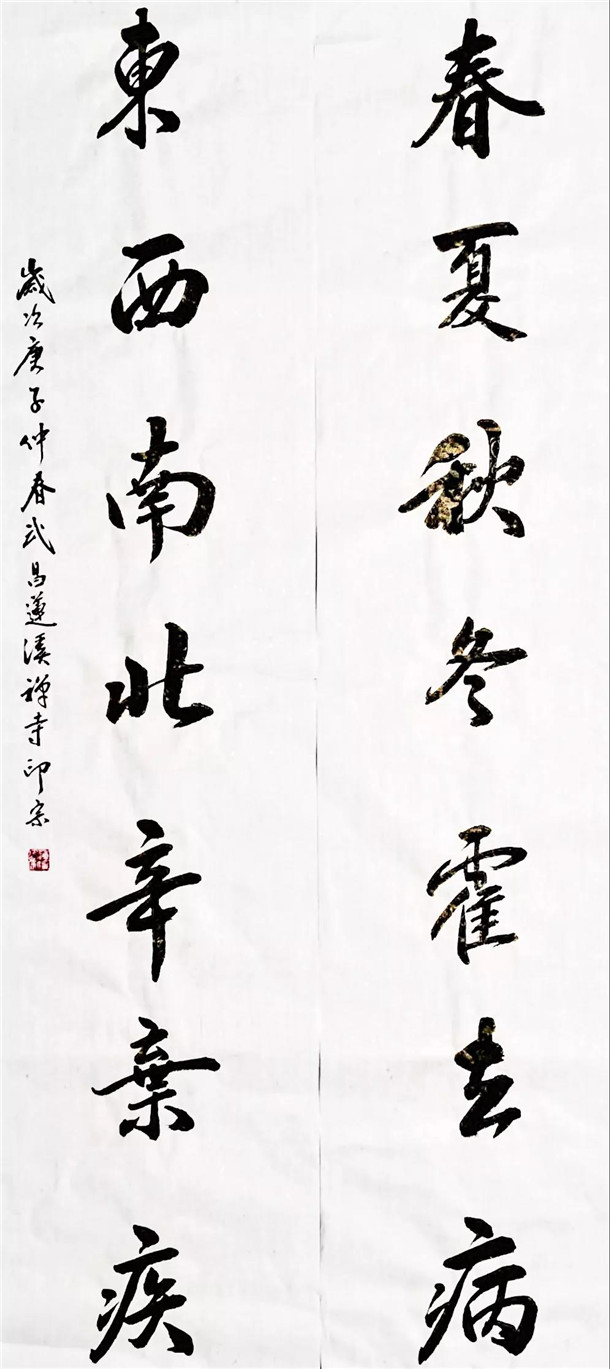 春夏秋冬霍去病
東西南北辛棄疾
歲次庚子仲春武昌蓮溪禪寺印宗